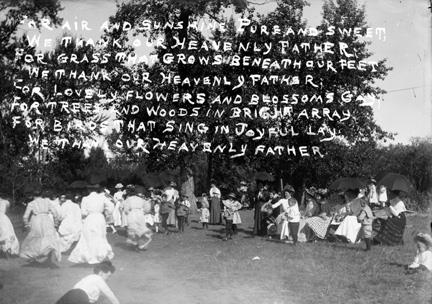 For air and sunshine pure and sweet,
We thank our Heavenly Father,
For grass that grows beneath our feet
We thank our Heavenly Father,
For lovely flowers and blossoms gay
For trees and woods in bright array
For birds that sing in joyful lay,
We thank our Heavenly Father.